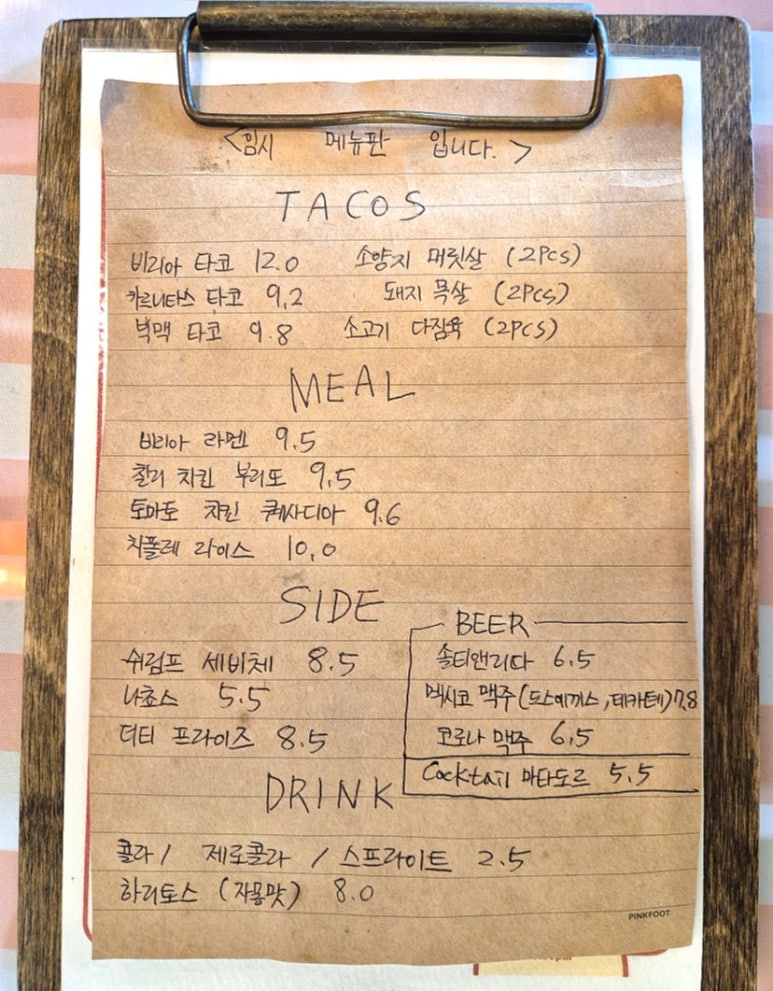 <임시 메뉴판 입니다.>
TACOS
비리아 타코 12.0 소양지 머릿살 (2PCS)
카르니타스 타코 9.2 돼지 목살 (2PCS)
빅맥 타코 9.8 소고기 다짐육 (2PCS)
MEAL
비리아 라멘 9.5
칠리 치킨 부리또 9.5
토마토 치킨 퀘사디아 9.6
치폴레 라이스 10.0
SIDE
쉬림프 세비체 8.5
나쵸스 5.5
더티 프라이즈 8.5
BEER
솔티앤리다 6.5
멕시코 맥주 (도스에끼스, 테카테) 7.8
코로나 맥주 6.5
Cocktail 마타도르 5.5
DRINK
콜라 / 제로콜라 / 스프라이트 2.5
하리토스 (자몽맛) 8.0
PINKFOOT